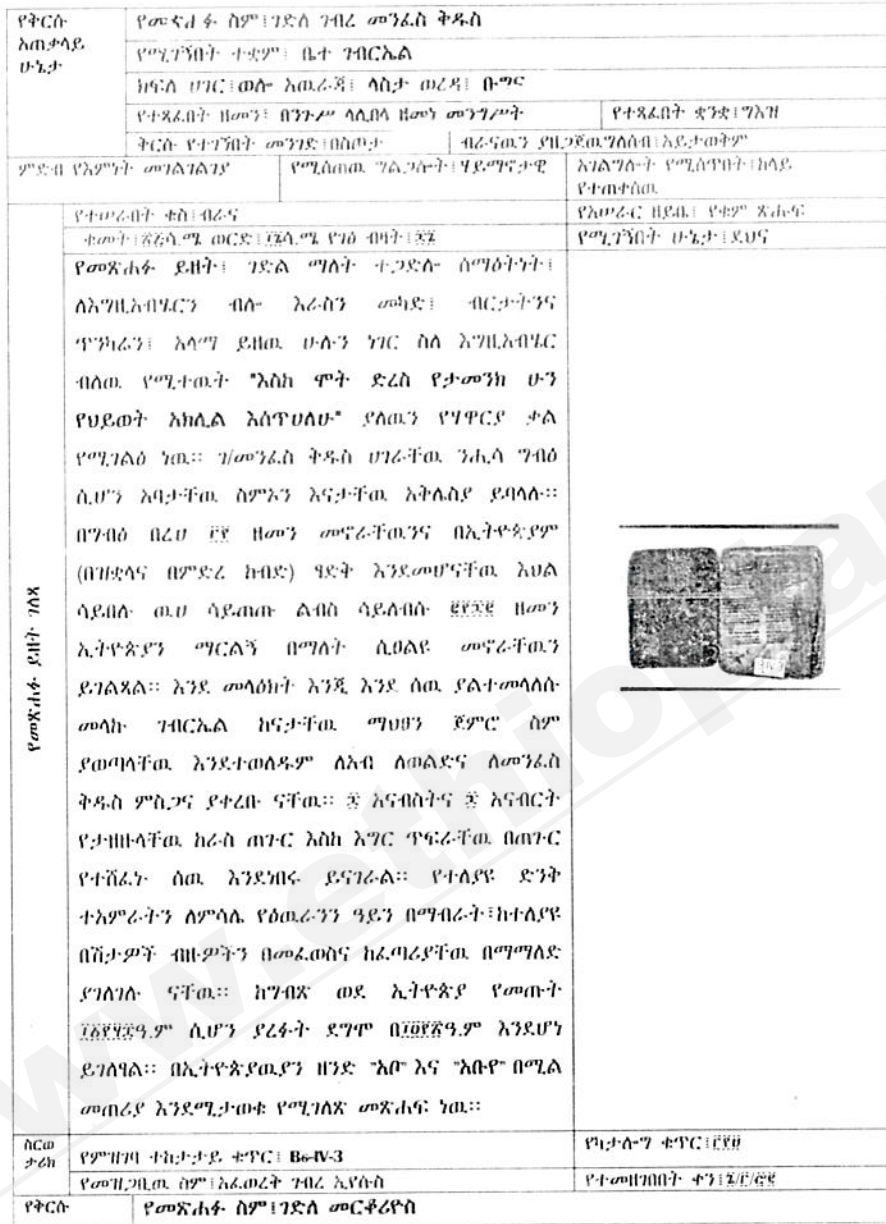 የቅርሱ
አጠቃላይ
ሁኔታ
የመፅሀፉ ስም፤ገድለ ገብረ መንፈስ ቅዱስ
የሚገኝበት ተቋም፤ ቤተ ገብርኤል
ክፍለ ሀገር፤ወሎ አዉራጃ፤ ላስታ ወረዳ፤ ቡግና
የተጻፈበት ዘመን፤ በንጉሥ ላሊበላ ዘመነ መንግሥት
የተጻፈበት ቋንቋ፤ግእዝ
ቅርሱ የተገኘበት መንገድ፤በስጦታ
ብራናዉን ያዘጋጀዉግለሰብ፤አይታወቅም
ምድብ የእምነት መገልገልገያ
የሚሰጠዉ ግልጋሎት፤ሃይማኖታዊ
አገልግሎት የሚሰጥበት፤ከላይ
የተጠቀሰዉ
የተሠራበት ቁስ፤ብራና
የአሠራር ዘይቤ፤ የቁም ጽሑፍ
ቁመት፤ ሳ.ሜ ወርድ፤ ሳ.ሜ የገፅ ብዛት፤
የሚገኝበት ሁኔታ፤ደህና
የመጽሐፉ ይዘት ገለጻ
የመጽሐፉ ይዘት፤ ገድል ማለት ተጋድሎ ሰማዕትነት፤
ለእግዚአብሄርን ብሎ እራስን መካድ፤ ብርታትንና
ጥንካሬን፤ አላማ ይዘዉ ሁሉን ነገር ስለ እግዚአብሄር
ብለዉ የሚተዉት "እስከ ሞት ድረስ የታመንክ ሁን
የህይወት አክሊል እሰጥሀለሁ" ያለዉን የሃዋርያ ቃል
የሚገልፅ ነዉ። ገ/መንፈስ ቅዱስ ሀገራቸዉ ንሒሳ ግብፅ
ሲሆን አባታቸዉ ስምኦን እናታቸዉ አቅሌስያ ይባላሉ።
በግብፅ በረሀ ዘመን መኖራቸዉንና በኢትዮጵያም
(በዝቋላና በምድረ ከብድ) ፃድቅ እንደመሆናቸዉ እህል
ሳይበሉ ዉሀ ሳይጠጡ ልብስ ሳይለብሱ ዘመን
ኢትዮጵያን ማርልኝ በማለት ሲፀልዩ መኖራቸዉን
ይገልጻል። እንደ መላዕክት እንጂ እንደ ሰዉ ያልተመላለሱ
መላኩ ገብርኤል ከናታቸዉ ማህፀን ጀምሮ ስም
ያወጣላቸዉ እንደተወለዱም ለአብ ለወልድና ለመንፈስ
ቅዱስ ምስጋና ያቀረቡ ናቸዉ። ፷ አናብስትና ፷ አናብርት
የታዘዙላቸዉ ከራስ ጠጉር እስከ እግር ጥፍራቸዉ በጠጉር
የተሸፈኑ ሰዉ እንደነበሩ ይናገራል። የተለያዩ ድንቅ
ተአምራትን ለምሳሌ የዕዉራንን ዓይን በማብራት፣ከተለያዩ
በሽታዎች ብዙዎችን በመፈወስና ከፈጣሪያቸዉ በማማለድ
ያገለገሉ ናቸዉ። ከግብጽ ወደ ኢትዮጵያ የመጡት
ዓ.ም ሲሆን ያረፉት ደግሞ ዓ.ም እንደሆነ
ይገለፃል። በኢትዮጵያዉያን ዘንድ "አቦ" እና "አቡዮ" በሚል
መጠሪያ እንደሚታወቁ የሚገለጽ መጽሐፍ ነዉ።
ስርወ
ታሪክ
የምዝገባ ተከታታይ ቁጥር፤ B6-IV-3
የካታሎግ ቁጥር፤
የመዝጋቢዉ ስም፤አፈወረቅ ገብረ ኢየሱስ
የተመዘገበበት ቀን፤
የቅርሱ
የመጽሐፉ ስም፤ገድለ መርቆሪዮስ